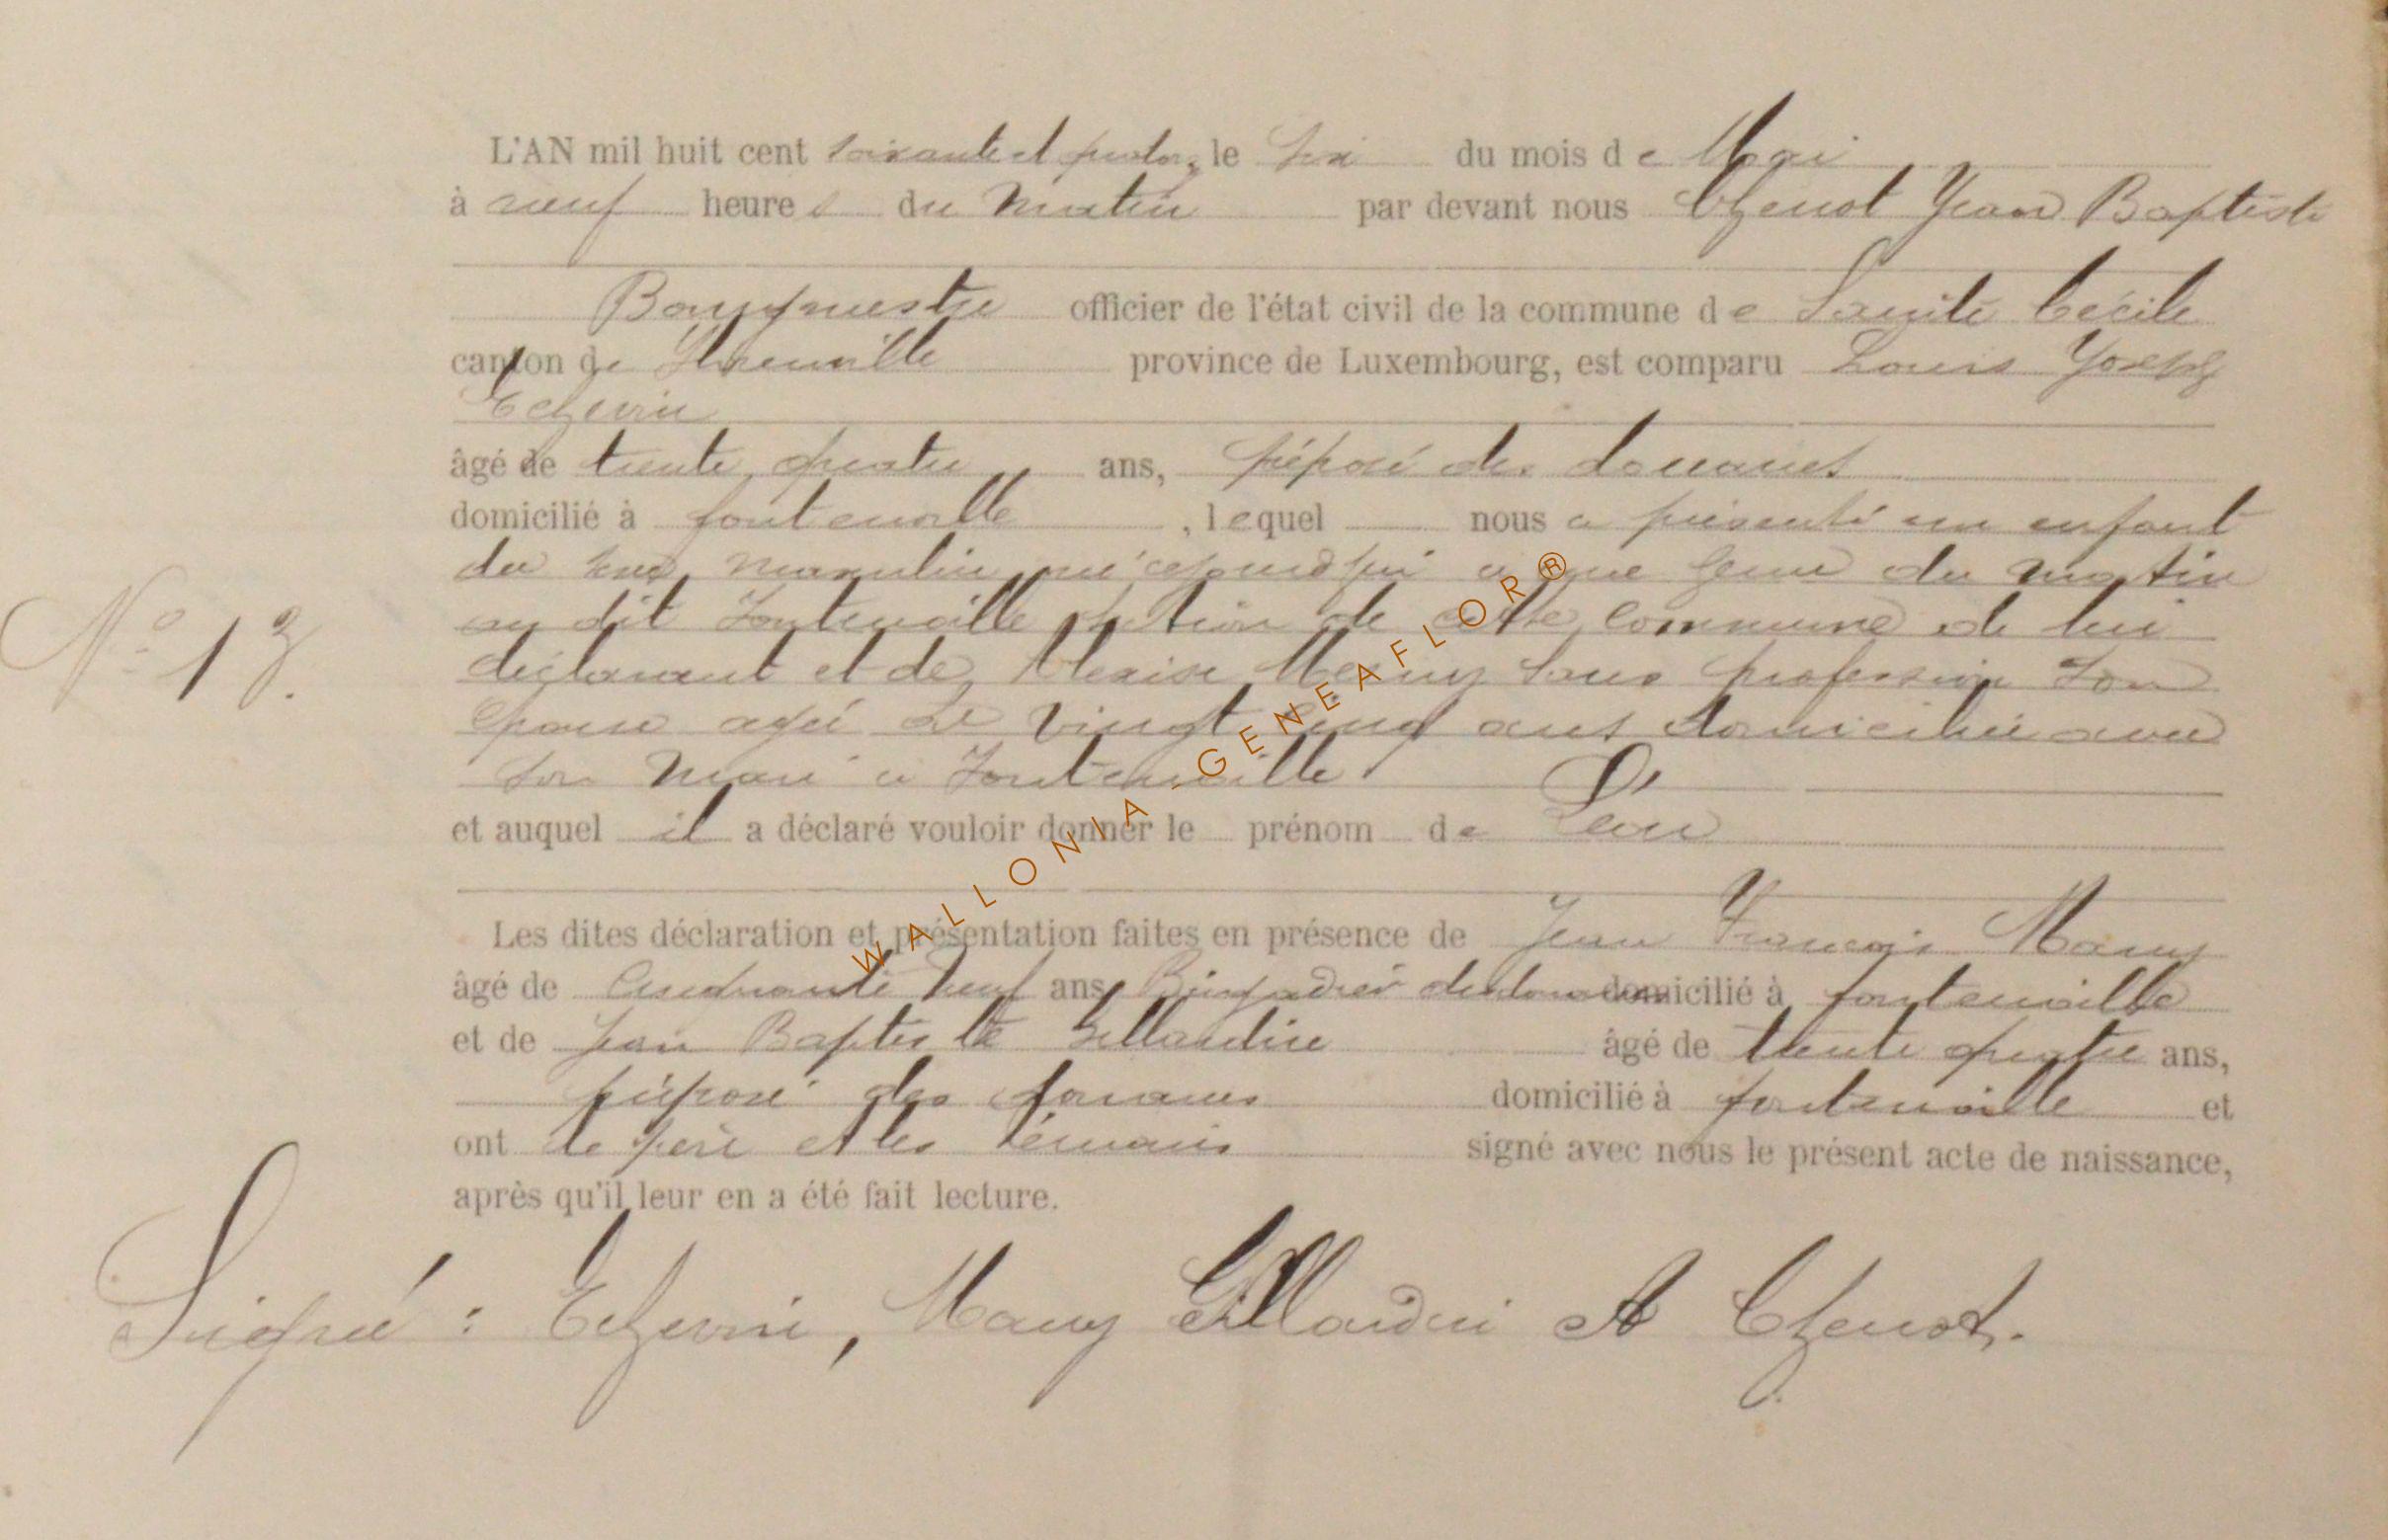 L'AN mil huit cent soixante et quatorze le six du mois de Mai
à neuf heures du matin par devant nous Thenot Jean Baptiste
Bourgmestre officier de l'état civil de la commune de Sainte Cécile
canton de Florenville province de Luxembourg, est comparu Louis Joseph
Echevrin
âgé de trente quatre ans, préposé des douanes
domicilié à fontenoille, lequel nous a présenté un enfant
du sexe masculin né cejourd'hui a une heure du matin
au dit Fontenoille section de cette commune de lui
déclarant et de Many sans profession son
épouse agée de vingt cinq ans domiciliée avec
son mari a Fontenoille
et auquel il a déclaré vouloir donner le prénom de Léon
Les dites déclaration et présentation faites en présence de Jean François Many
âgé de Cinquante neuf ans, Brigadier des douanes domicilié à fontenoille
et de Jean Baptiste Gillardin âgé de trente quatre ans,
préposé des douanes domicilié à fontenoille et
ont le père et les témoins signé avec nous le présent acte de naissance,
après qu'il leur en a été fait lecture.
N° 13.
Signé : Echevrin, Many Gillardin et Thenot.
WALLONIA - GENEAFLOR®